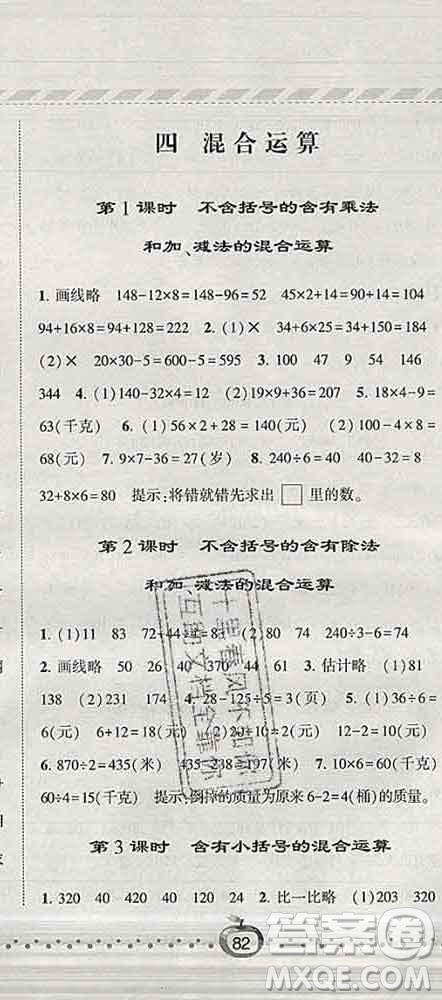 四 混合运算
第1课时 不含括号的含有乘法
和加、减法的混合运算
1. 画线略 148-12×8=148-96=52 45×2+14=90+14=104
94+16×8=94+128=222 2. (1)× 34+6×25=34+150=184
(2)× 20×30-5=600-5=595 3. 100 47 9 54 146
344 4. (1)140-32×4=12 (2)19×9+36=207 5. 18×4-9=
63(千克) 6. (1)56×2+28=140(元) (2)30×4-26×2=
68(元) 7. 9×7-36=27(岁) 8. 240÷6=40 40-32=8
32+8×6=80 提示:将错就错先求出□里的数。
第2课时 不含括号的含有除法
和加、减法的混合运算
1. (1)11 83 72 83 (2)3 74 240÷3-6=74
2. 画线略 50 26 40 370 44 61 3. 估计略 (1)81
138 (2)231 174 4. 28-125÷5=3(页) 5. (1)36÷6=
6(元) 6+12=18(元) (2)20÷10=2(元)
6. 870÷2=435(米) 435-238=197(米) 7. 10×6=60(千克)
60÷4=15(千克) 提示:倒掉的质量为原来6-2=4(桶)的质量。
第3课时 含有小括号的混合运算
1. 320 40 420 40 120 24 2. 比一比略 (1)203 320
82
答案圈
MXQE.COM